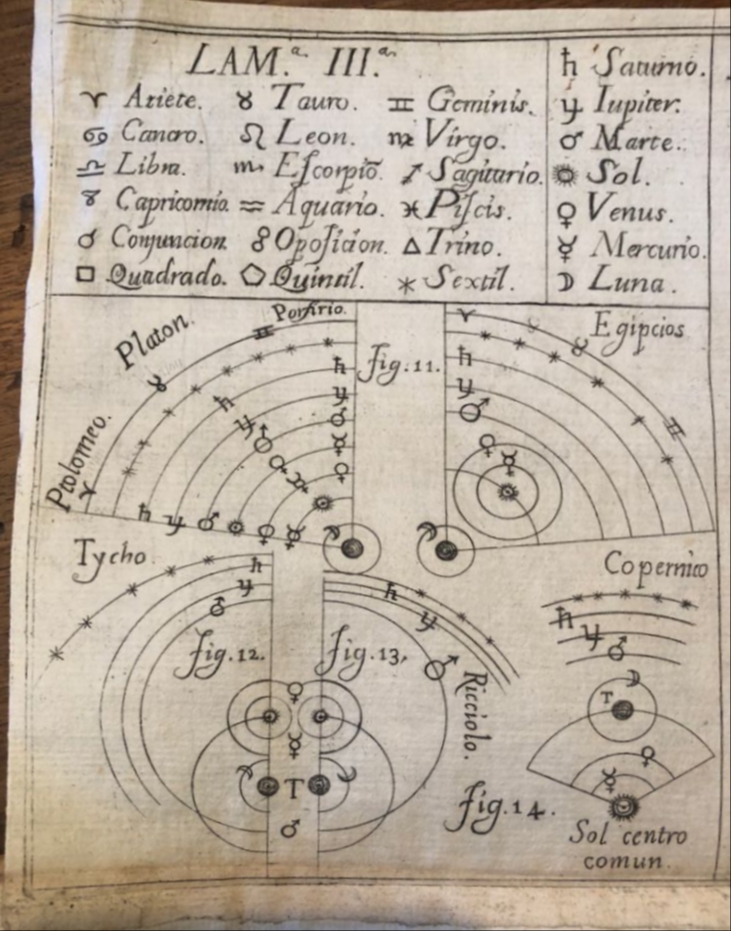 LAM.ª III.ª
♈ Ariete. ♉ Tauro. ♊ Geminis.
♋ Cancro. ♌ Leon. ♍ Virgo.
♎ Libra. ♏ Eſcorpiõ. ♐ Sagitario.
♑ Capricornio. ♒ Aquario. ♓ Piſcis.
☌ Conjuncion. ☍ Opoſicion. △ Trino.
□ Quadrado. ⬠ Quintil. ⚹ Sextil.
♄ Saturno.
♃ Iupiter.
♂ Marte.
☉ Sol.
♀ Venus.
☿ Mercurio.
☽ Luna.
Ptolomeo.
Platon.
Porfirio.
fig.11.
Egipcios
Tycho
fig.12.
fig.13.
Ricciolo.
T
Copernico
T
fig.14.
Sol centro
comun.